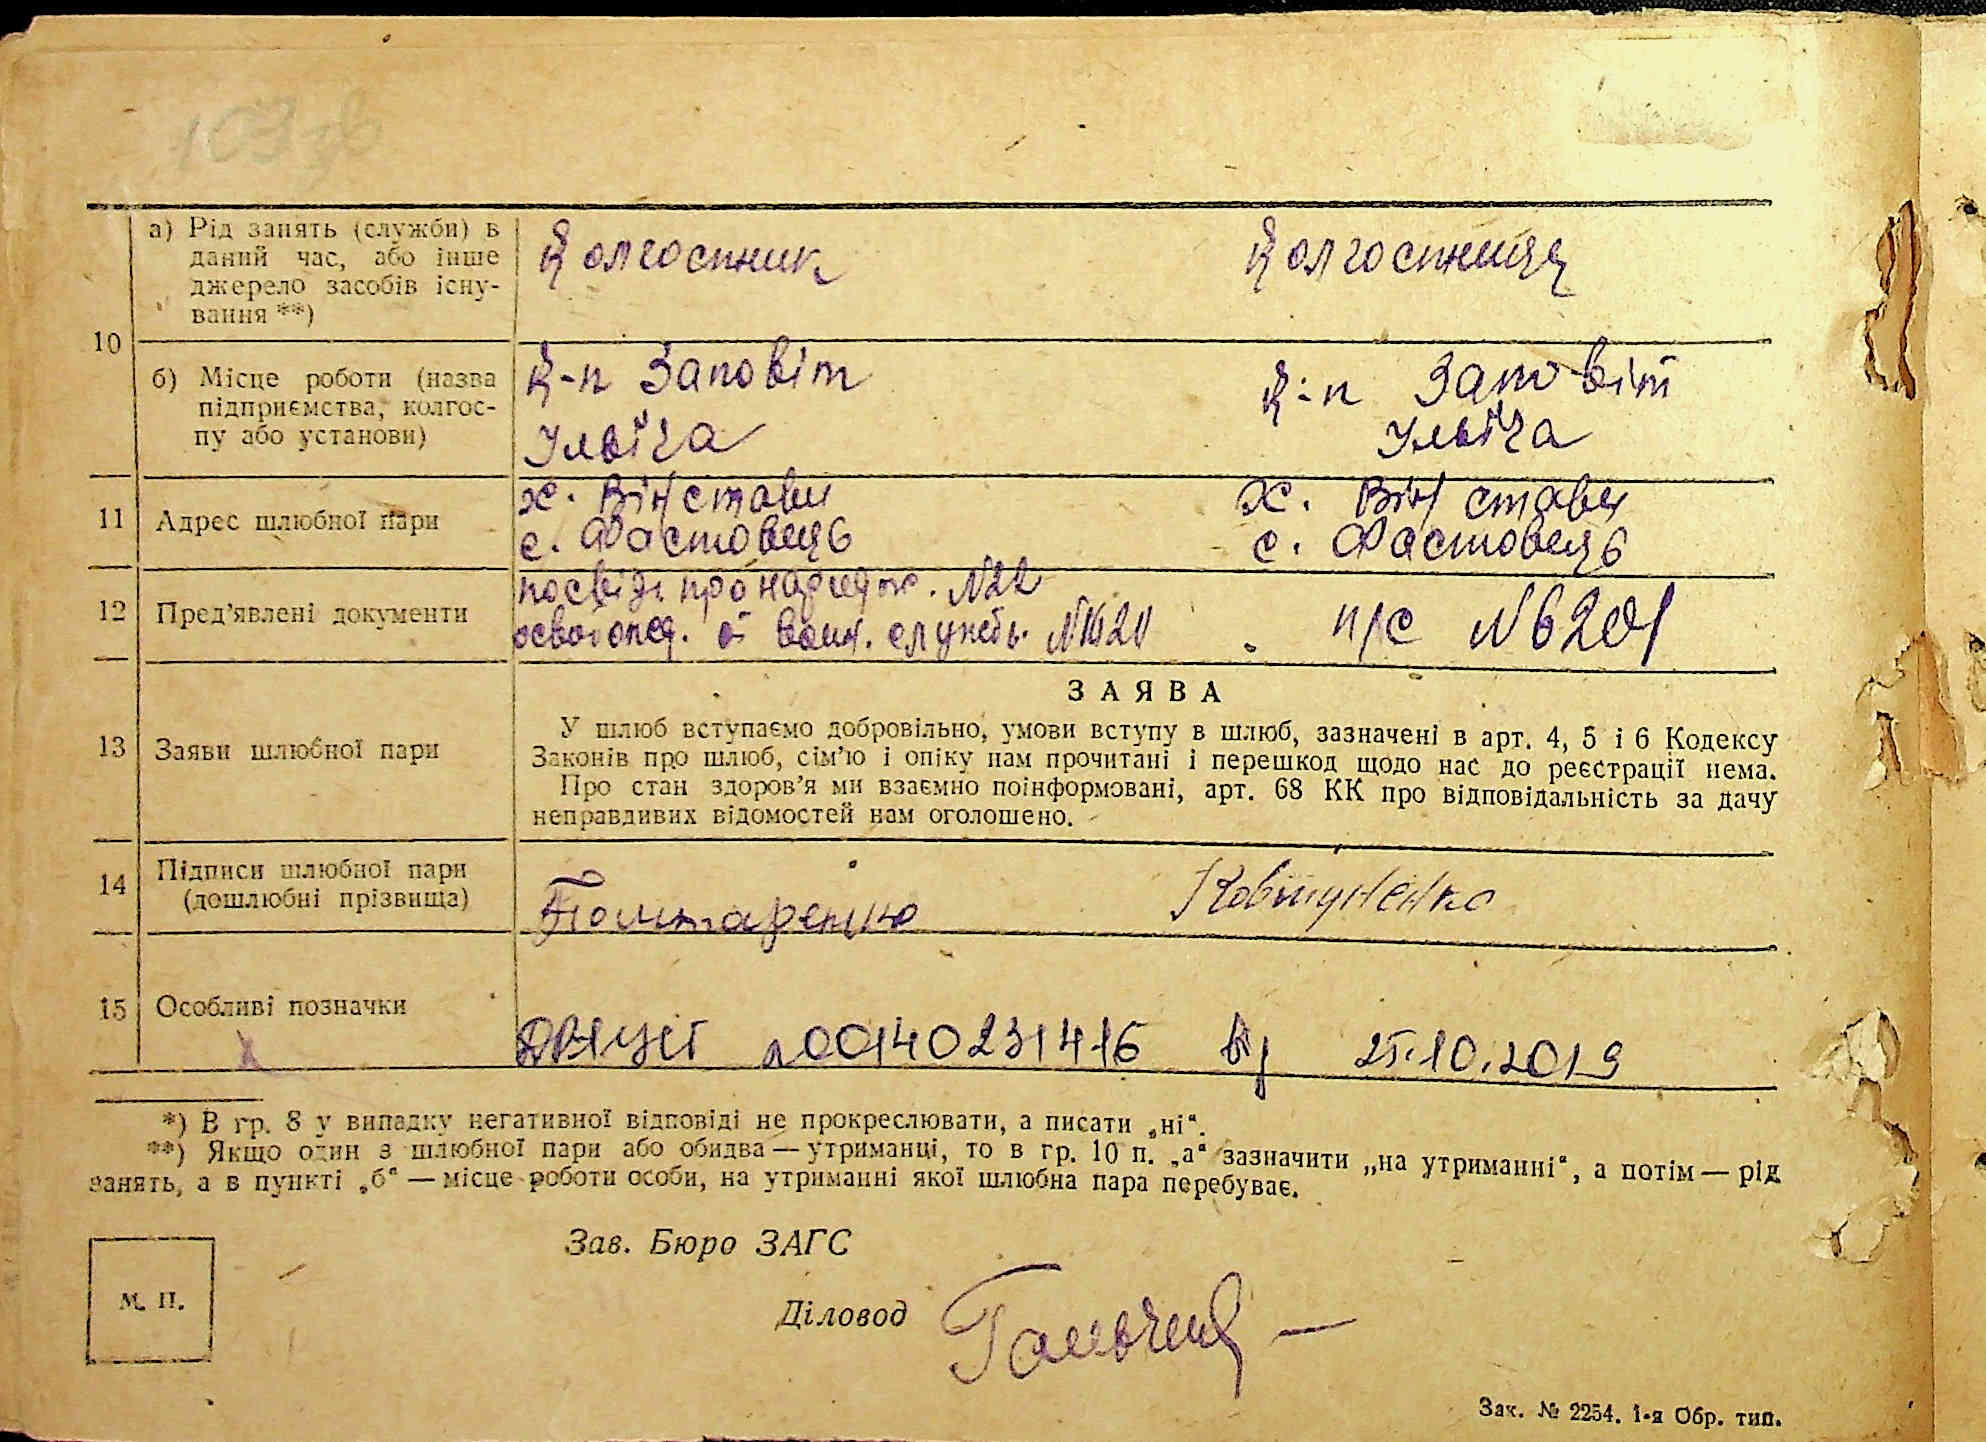 103 зв
а) Рід занять (служби) в
даний час, або інше
джерело засобів існу-
вання **)
Колгоспник
Колгоспниця
10
б) Місце роботи (назва
підприємства, колгос-
пу або установи)
К-п Заповіт
Ілліча
К-п Заповіт
Ілліча
11
Адрес шлюбної пари
х. Вінстави
с. Фастовець
х. Вінстави
с. Фастовець
12
Пред'явлені документи
посвід. про народж. №22
освобожд. от воин. службы
п/с №6201
13
Заяви шлюбної пари
ЗАЯВА
У шлюб вступаємо добровільно, умови вступу в шлюб, зазначені в арт. 4, 5 і 6 Кодексу
Законів про шлюб, сім'ю і опіку нам прочитані і перешкод щодо нас до реєстрації нема.
Про стан здоров'я ми взаємно поінформовані, арт. 68 КК про відповідальність за дачу
неправдивих відомостей нам оголошено.
14
Підписи шлюбної пари
(дошлюбні прізвища)
Ковтуненко
15
Особливі позначки
ДРАЦСГ 00140231416 від 25.10.2019
*) В гр. 8 у випадку негативної відповіді не прокреслювати, а писати „ні“.
**) Якщо один з шлюбної пари або обидва — утриманці, то в гр. 10 п. „а“ зазначити „на утриманні“, а потім — рід
занять, а в пункті „б“ — місце роботи особи, на утриманні якої шлюбна пара перебуває.
Зав. Бюро ЗАГС
М. П.
Діловод
Зак. № 2254. 1-я Обр. тип.